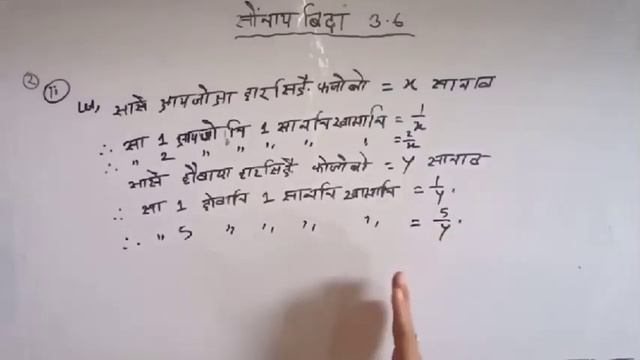 सोंनाय बिदां 3.6
② ii Let, सासे आयजोआ हारसिङै फजोबो = x सानाव
∴ सा 1 आयजोनि 1 सानिनि खामानि = 1/x
∴ " 2 " " " " " = 2/x
सासे हौवाया हारसिङै फोजोबो = y सानाव
∴ सा 1 होवानि 1 सानिनि खामानि = 1/y .
∴ " 5 " " " " = 5/y .